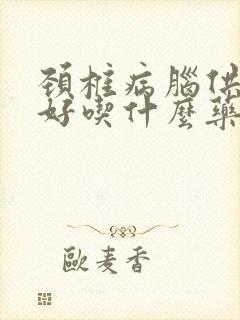 頚椎病腦供
好喫什麼藥
歐麦香